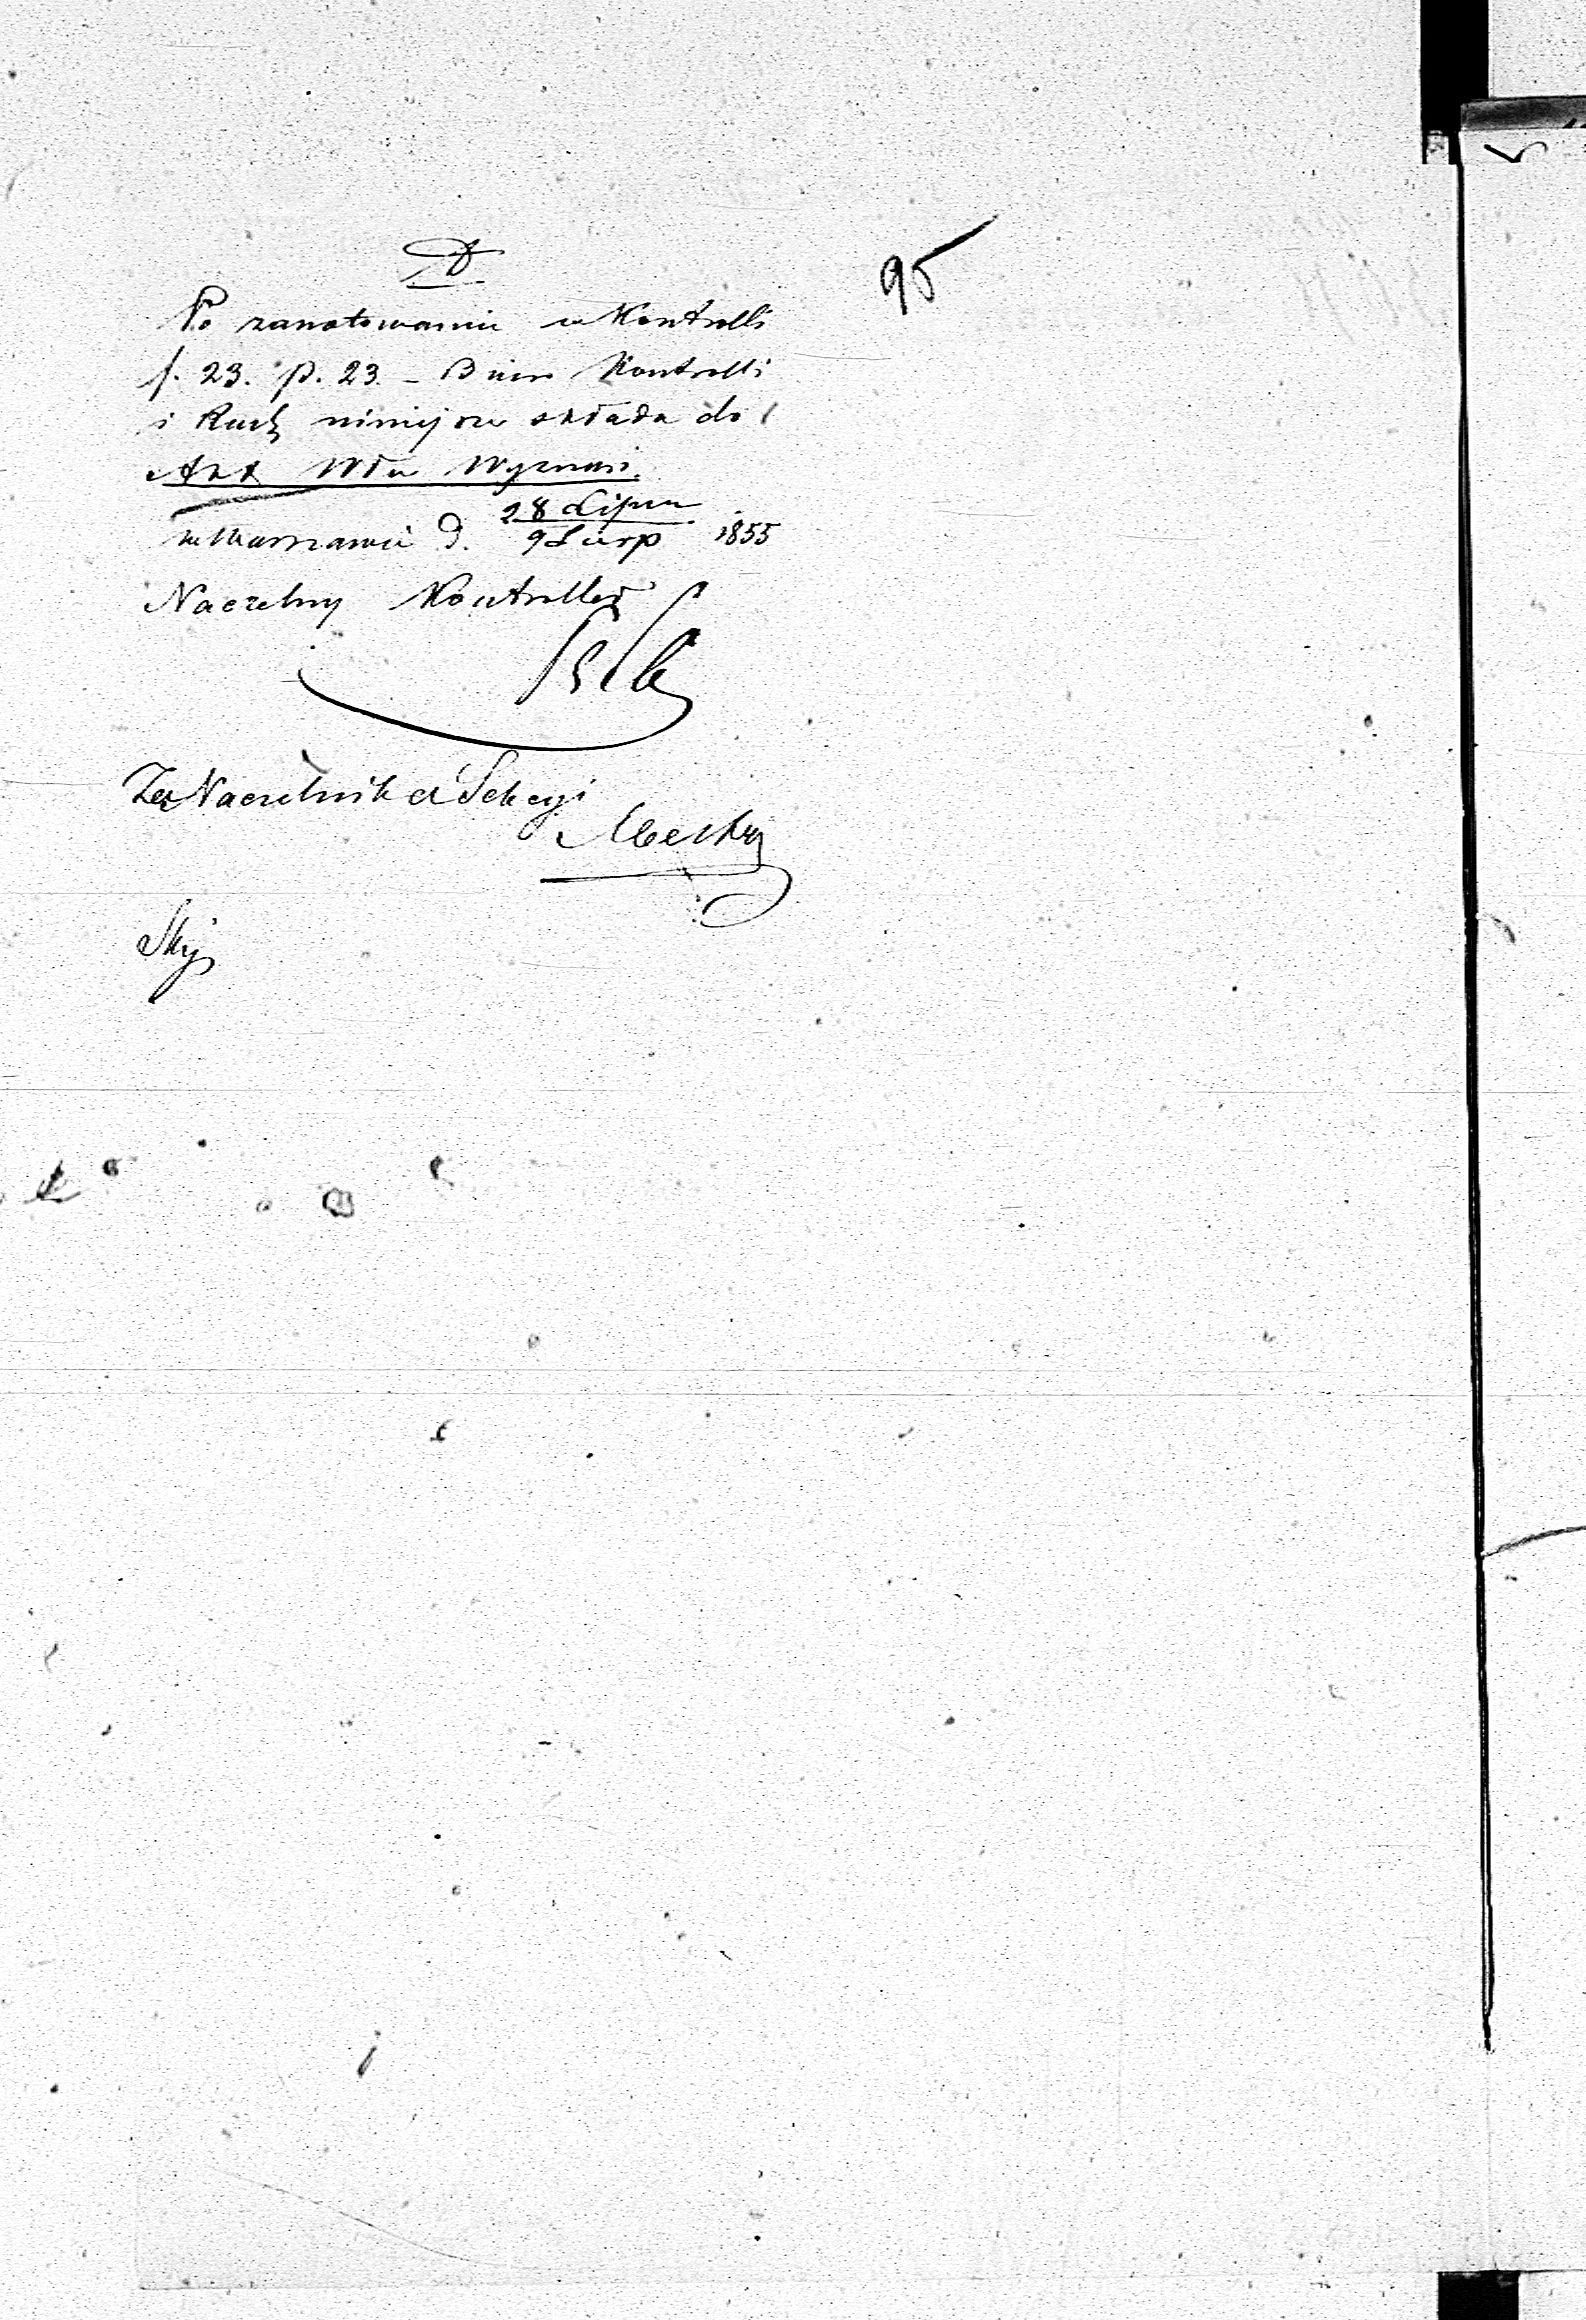 95
Po zanotowaniu w Kontrolli
f. 23. p. 23. – Biuro Kontrolli
i Rach niniejsze składa do
Akt Wła Wyznań.
w Warszawie d. 28 Lipca / 9 Sierp 1855
Naczelny Kontroller
Za Naczelnika Sekcyi